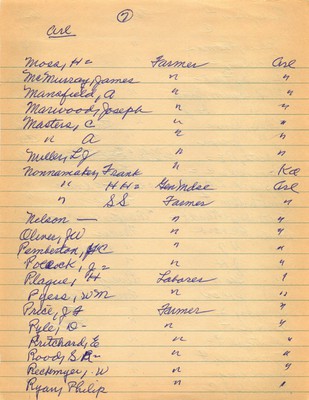 7
Arl
Moss, H - Farmer Arl
McMurray, James " "
Mansfield, A " "
Marwood, Joseph " "
Masters, C " "
" A " "
Miller, L J " "
Nonnamaker, Frank " Ka
" H H = Gen Mdse Arl
" S S Farmer "
Nelson — " "
Oliver, J W " "
Pemberton, H C " "
Pollock, J - " "
Plague, H Laborer "
Pyers, W M " "
Price, J F Farmer "
Pyle, D - " "
Pritchard, E " "
Rood, S R - " "
Reckmyer, W " "
Ryan, Philip " "